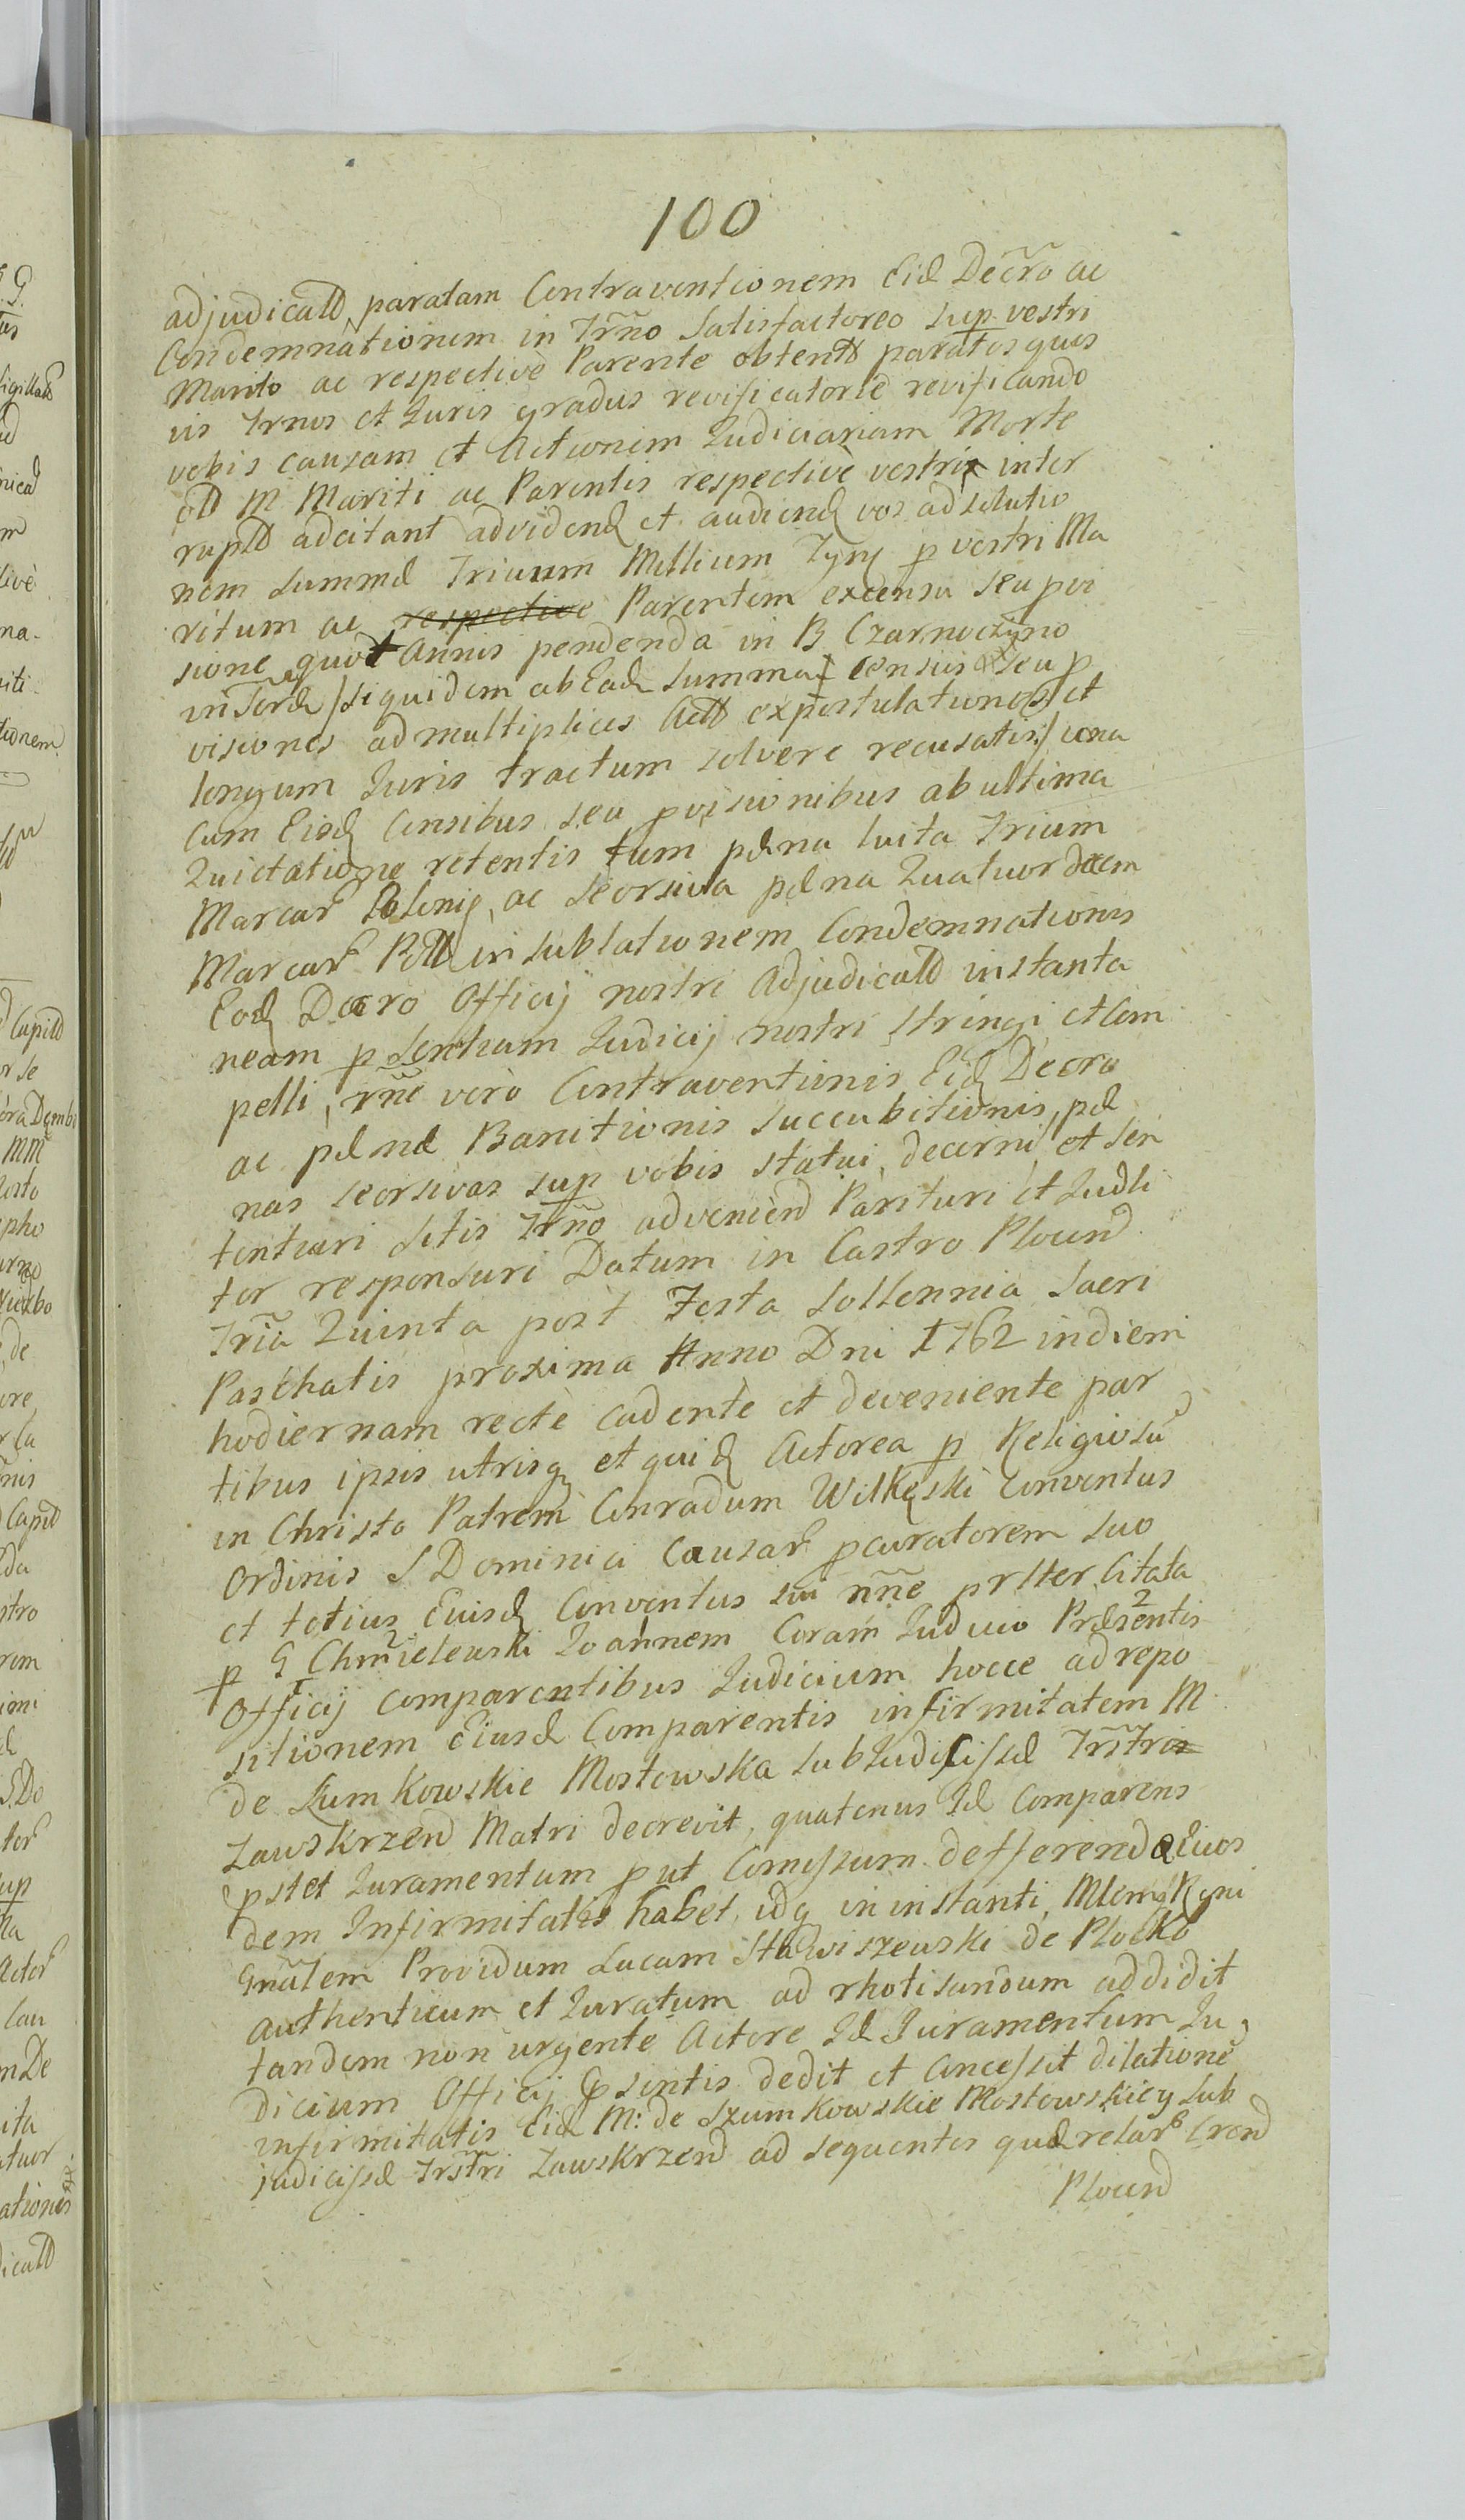 100
adjudicatt paratam Contraventionem Eid Decr̃o ac
Condemnationem in Tr̃no Satisfactoreo Sup vestri
Marito ac respectivè Parente obtentt paratos quos
vis Trnos et Juris gradus revificatorie revificando
vobis causam et Actionem Judiciariam Morte
ott M Mariti ac Parentis respectivè vestri inter
ruptt adcitant advidend et audiend vos ad solutio
nem Summæ Trium Millium Tynf p vestri Ma
ritum ac respective Parentem excensu seu pvi
sione quot Annis pendenda in B Czarnocino
inscrd /siquidem ab Ead Summa census seu p
visiones ad multiplices Actt expostulationes et
longum Juris tractum solvere recusatis:/ una
Cum Eisd Censibus seu pvisionibus ab ultima
Quietatione retentis tum pæna luita Trium
Marcar Polonię, ac seorsiva pæna Quatuordecem
Marcar Poll in sublationem Condemnationis
Eod Decro Officij nostri Adjudicatt instanta
neam p Sentiam Judicij nostri stringi et Com
pelli, r̃ne verò Contraventionis Eid Decro
ac pænæ Banitionis succubitionis pæ
nas seorsivas sup vobis statui, decerni et Sen
tentiari Sitis Tr̃no adveniend Parituri et Judli
ter responsuri Datum in Castro Plocen
Fr̃ia Quinta post Festa Sollennia Sacri
Paschatis proxima Anno Dni 1762 in diem
hodiernam rectè cadente et deveniente par
tibus ipsis utrisq et quid Actorea p Religiosũ
in Christo Patrem Conradum Wilkęski Conventus
Ordinis S Dominici Causar pcuratorem suo
et totius Euisd Conventus sui ñne prlter Citata
p G Chmielewski Joannem Coram Judicio Præsentis
Officij comparentibus Judicium hocce ad repo
sitionem Eiusd Comparentis infirmitatem M
de Szumkowskie Mostowska Subjudicissæ Tr̃str̃i
Zawskrzen Matri decrevit, quatenus Id Comparens
pstet Juramentum put Comissum defferendæ Eius
dem Infirmitatis habet, idq in instanti, Mlem Rgni
Gnãlem Providum Lucam Stawiszewski de Plocko
authenticum et Juratum ad rhotisandum addidit
tandem non urgente Actore Id Juramentum Ju
dicium Officij psentis dedit et Concessit dilationẽ
infirmitatis Eid M: de Szumkowskie Mostowskiey Sub
judicissæ Trstri Zawskrzen ad sequentes quærelar Cren
Plocen